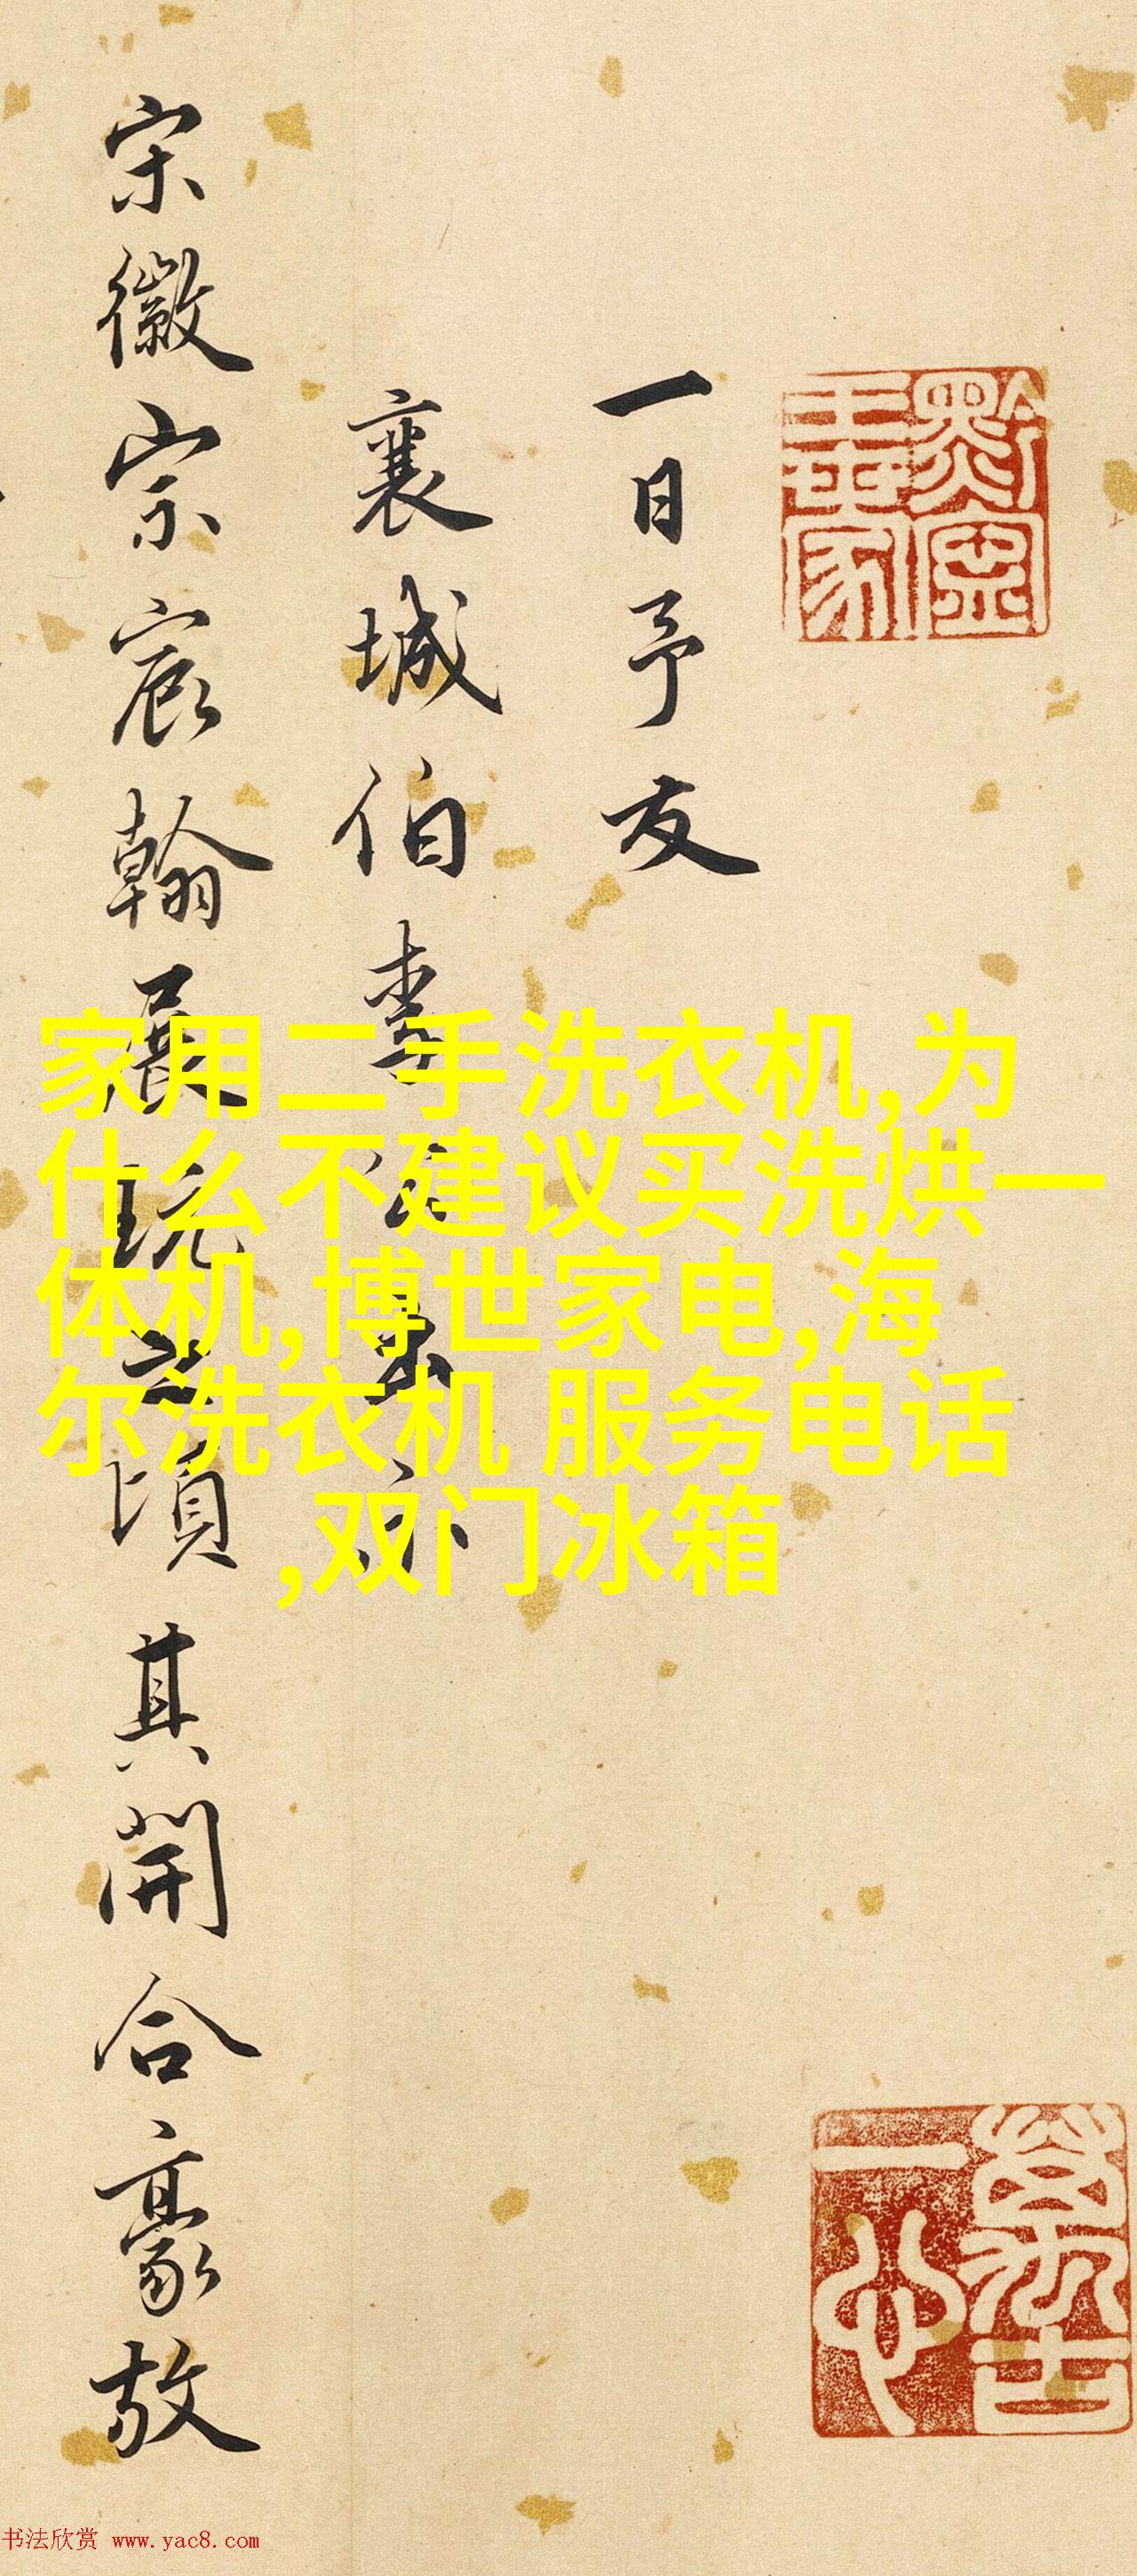 一日予友
襄城伯李
宋徽宗宸翰展玩之頃其開合豪放
家用二手洗衣机,为
什么不建议买洗烘一
体机,博世家电,海
尔洗衣机 服务电话
,双门冰箱
萬古
一心
书法欣赏 www.yac8.com